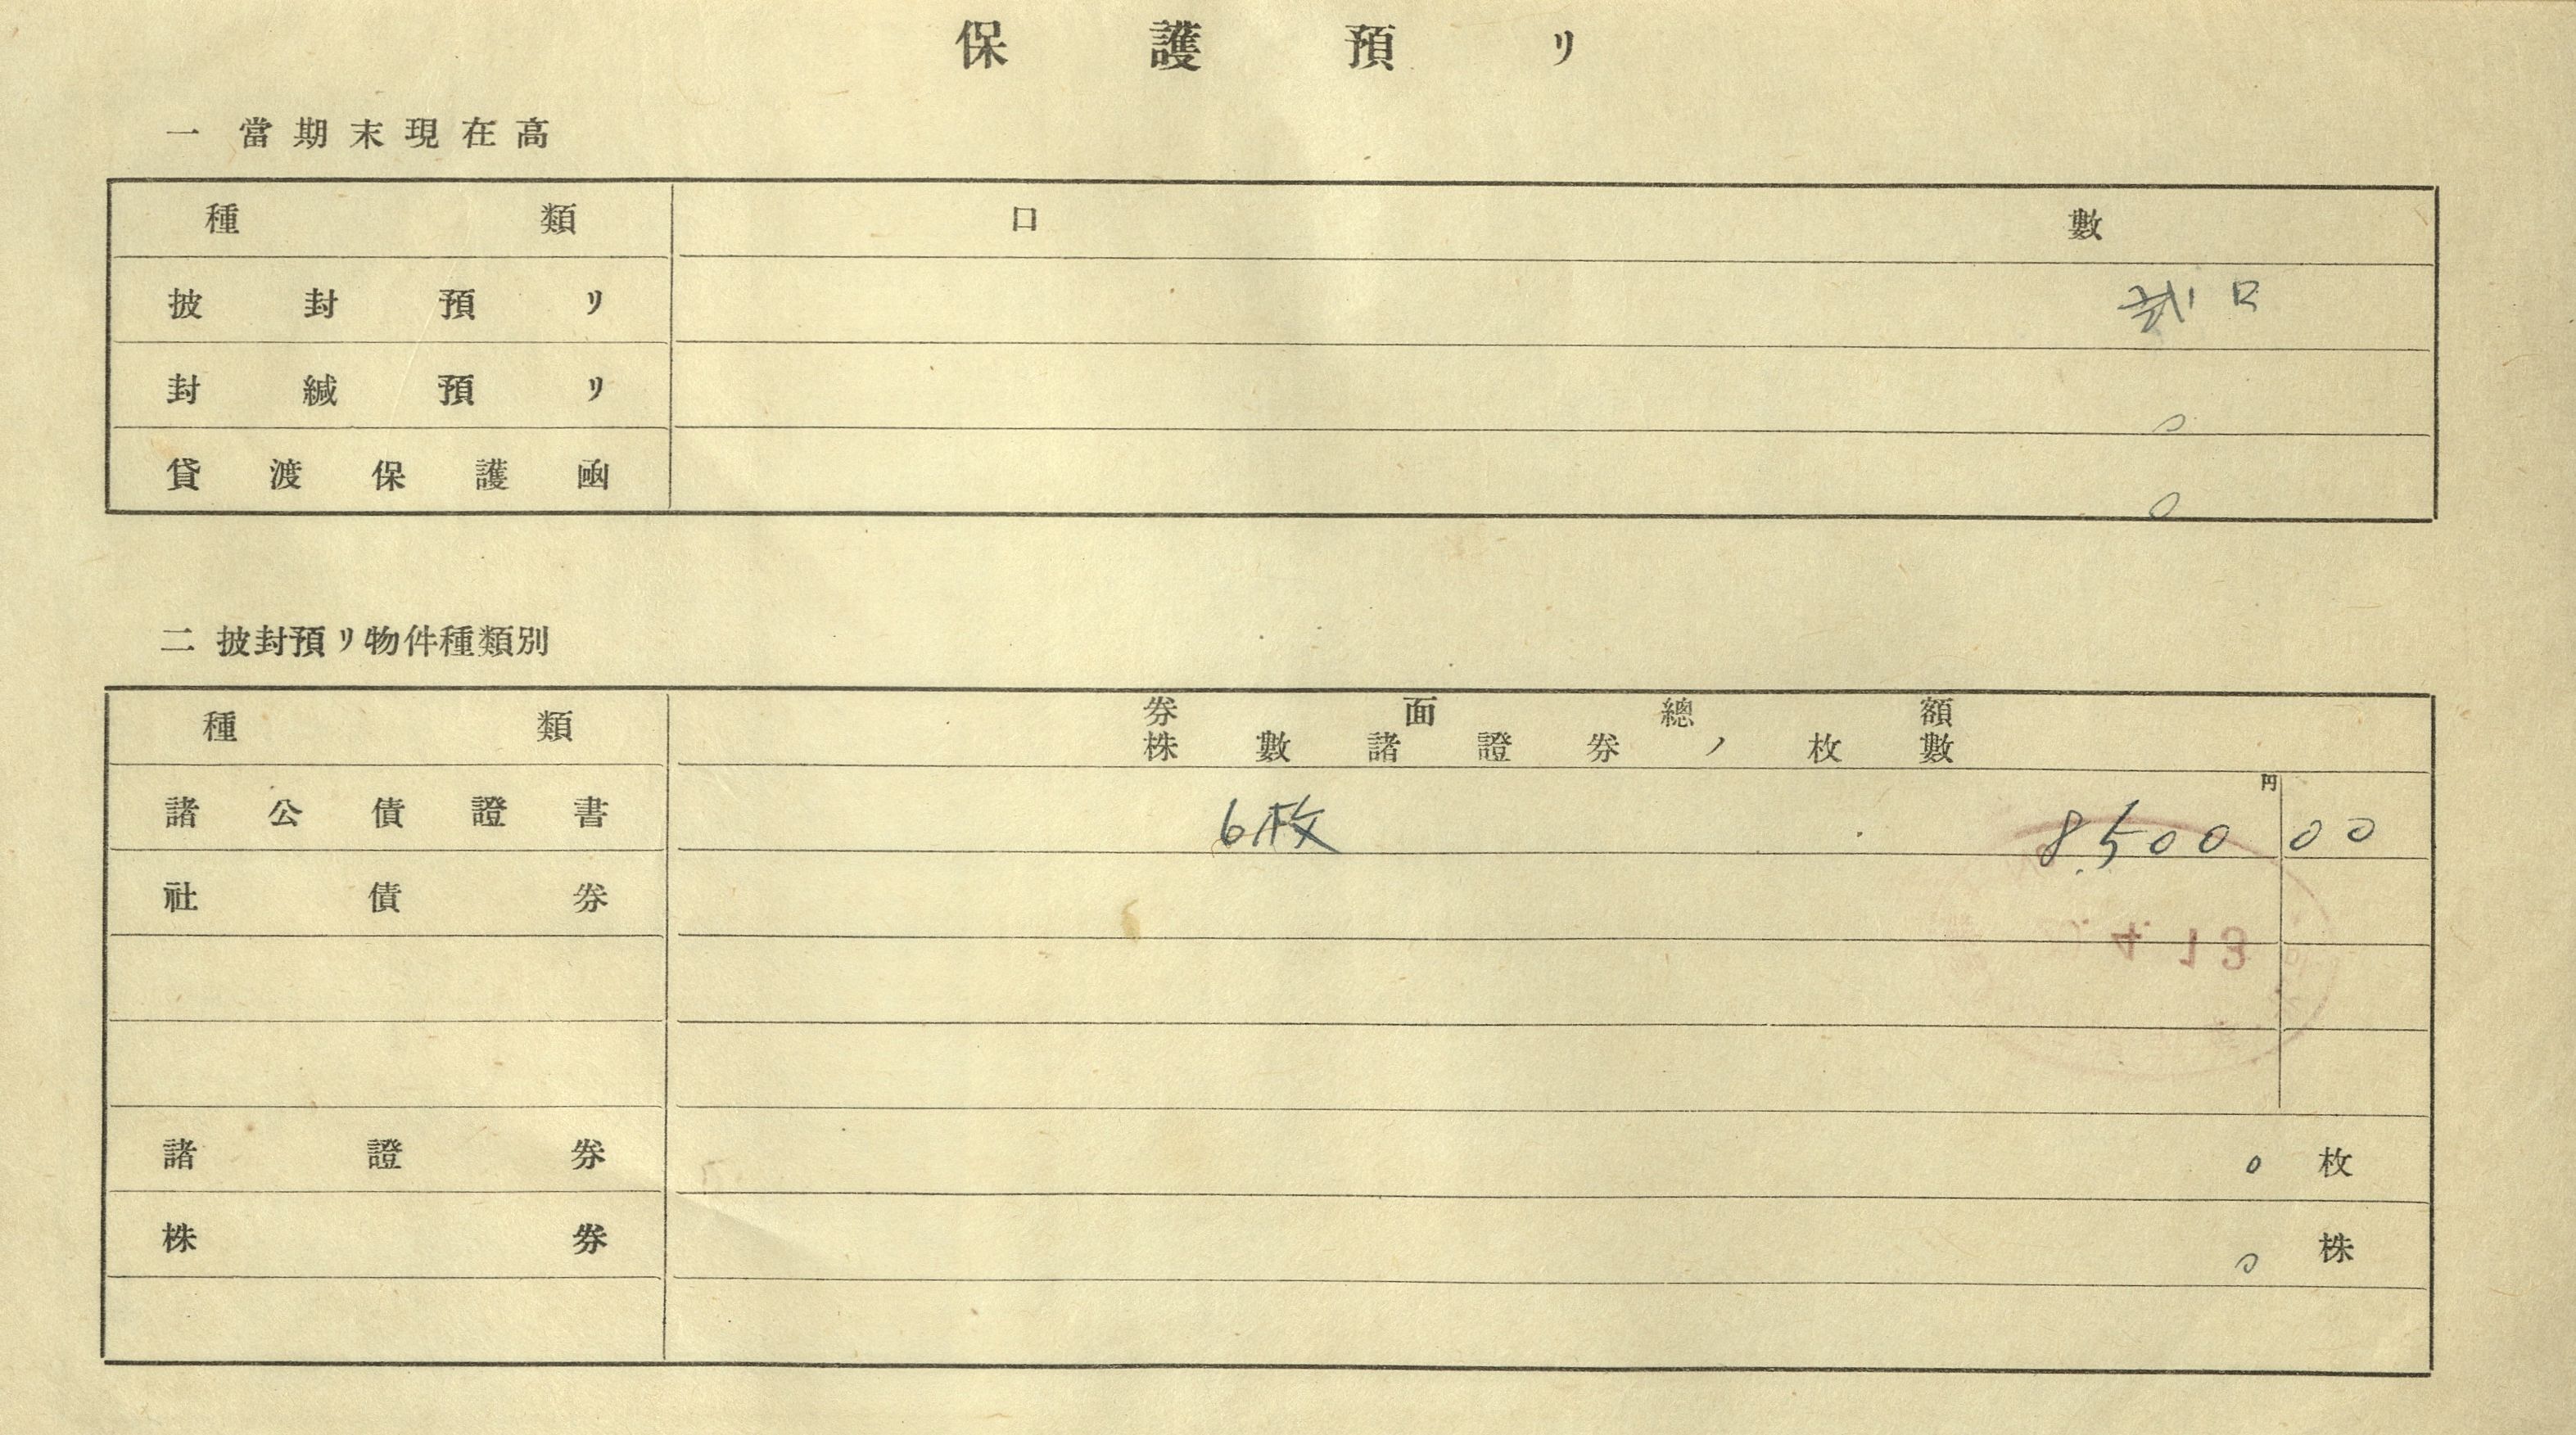 保護預リ
一 當期末現在高
種類 口數
披封預リ 口
封緘預リ 0
貸渡保護凾 0
二 披封預リ物件種類別
種類 券面總額
株數諸證券ノ枚數
円
諸公債證書 6枚 8500 00
社債券
4. 13
諸證券 0 枚
株券 0 株